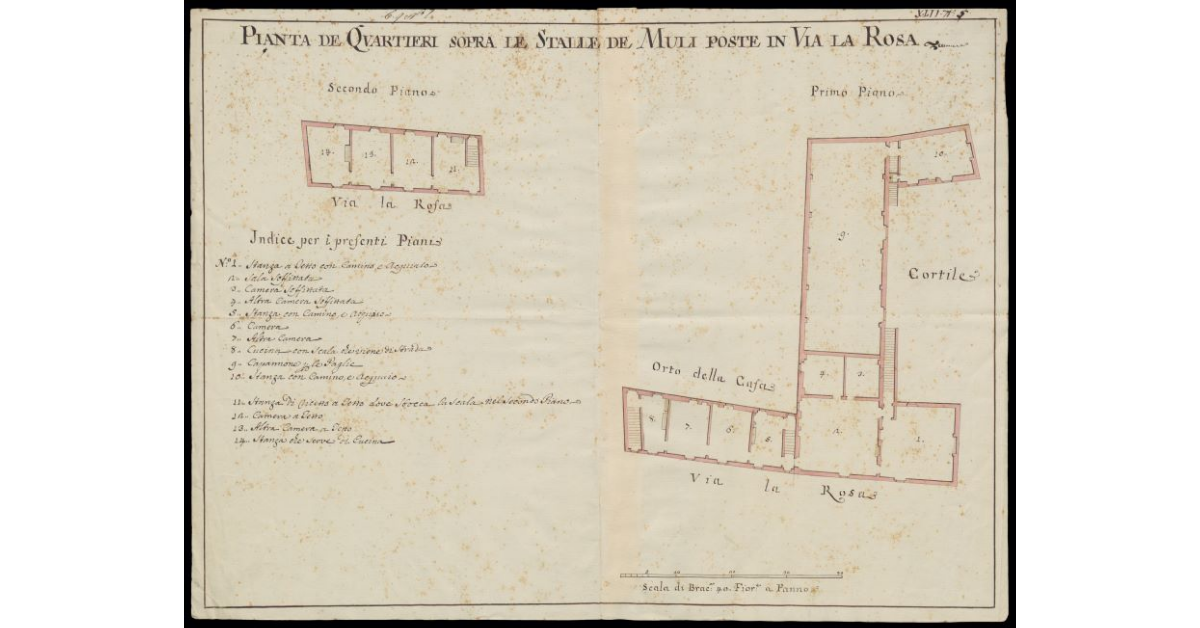 XLII. N.º 5
PIANTA DE QVARTIERI SOPRA LE STALLE DE MULI POSTE IN VIA LA ROSA
Secondo Piano
Primo Piano
14.
13.
12.
11.
Via la Rosa
10.
9.
Cortile
Indice per i presenti Piani
N.º 1. Stanza a Tetto con Camino, e Acquaio
2. Sala Soffittata
3. Camera Soffittata
4. Altra Camera Soffittata
5. Stanza con Camino, e Acquaio
6. Camera
7. Altra Camera
8. Cucina con Scala che viene di Strada
9. Capannone p. le Paglie
10. Stanza con Camino, e Acquaio
11. Stanza di a Tetto dove Sbocca la Scala nel Secondo Piano
12. Camera a Tetto
13. Altra Camera a Tetto
14. Stanza che Serve di Cucina
Orto della Casa
4.
3.
8.
7.
6.
5.
2.
1.
Via la Rosa
Scala di Brac. 40. Fior. a Panno